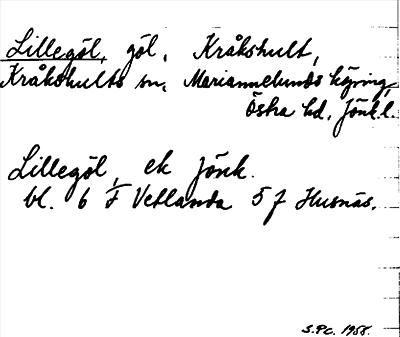 Lillegöl, göl, Kråkshult,
Kråkshults sn, Mariannelunds köping,
Östra hd, Jönk.l.
Lillegöl, ek Jönk.
bl. 6 F Vetlanda 5 f Husnäs.
S.Pc. 1958.